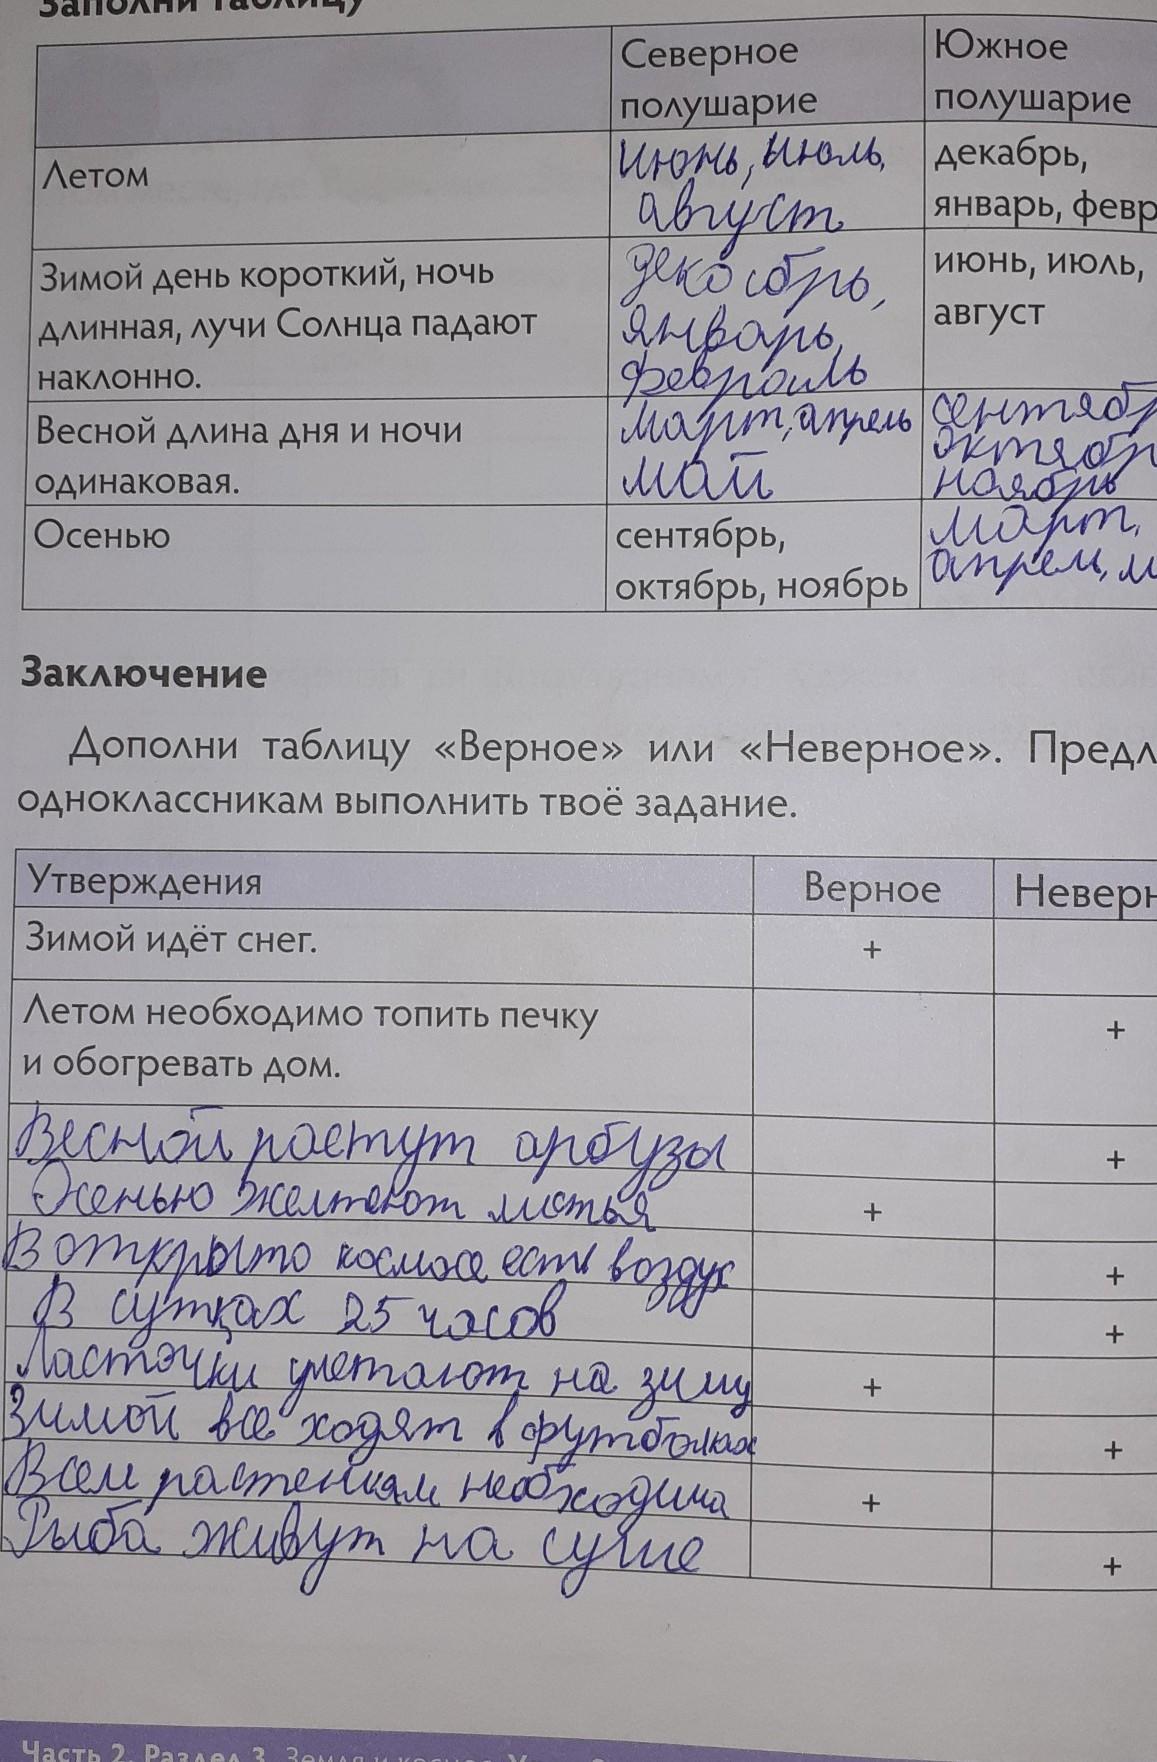 Заполни таблицу
Северное
полушарие
Южное
полушарие
Летом
июнь, июль,
август
декабрь,
январь, февр
Зимой день короткий, ночь
длинная, лучи Солнца падают
наклонно.
декабрь,
январь,
февраль
июнь, июль,
август
Весной длина дня и ночи
одинаковая.
март, апрель
май
сентябр
октябр
ноябрь
Осенью
сентябрь,
октябрь, ноябрь
март,
апрель, м
Заключение
Дополни таблицу «Верное» или «Неверное». Предл
одноклассникам выполнить твоё задание.
Утверждения Верное Неверн
Зимой идёт снег. +
Летом необходимо топить печку +
и обогревать дом.
Весной растут арбузы +
Осенью желтеют листья +
В открыто космосе есть воздух +
В сутках 25 часов +
Ласточки улетают на зиму +
Зимой все ходят в футболках +
Всем растениям необходима +
Рыба живут на суше +
Часть 2. Раздел 3. Земля и космос.